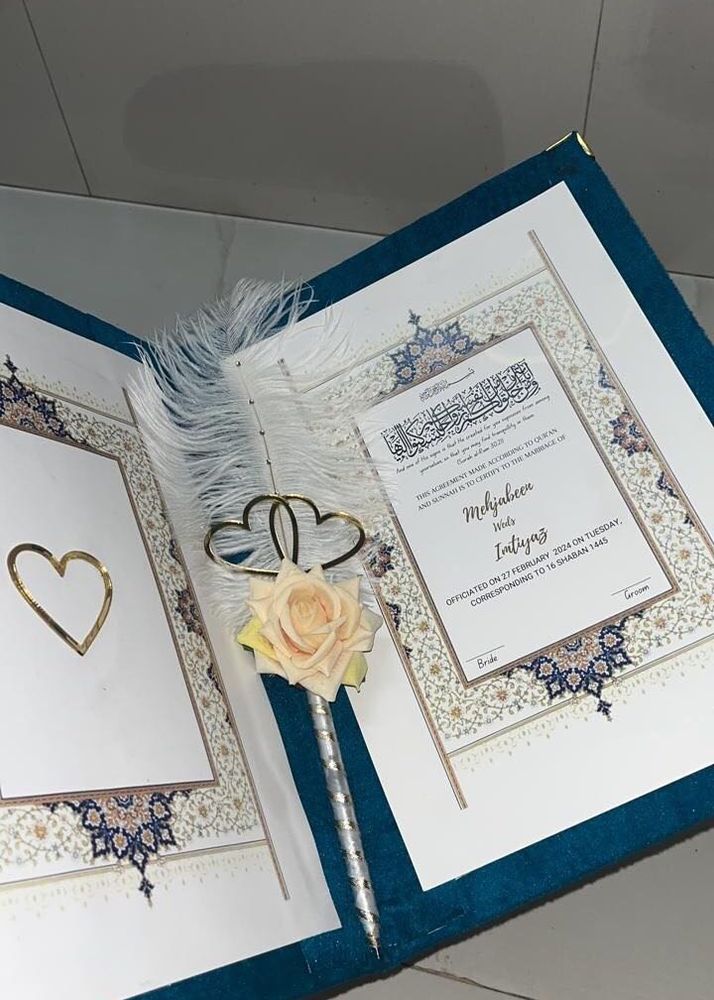 And one of the signs is that He created for you from among
yourselves, so that you may find tranquility in them
(Surah al-Rum 30:21)
THIS AGREEMENT MADE ACCORDING TO QUR'AN
AND SUNNAH IS TO CERTIFY THE MARRIAGE OF
Mehjabeen
Weds
Imtiyaz
OFFICIATED ON 27 FEBRUARY 2024 ON TUESDAY,
CORRESPONDING TO 16 SHABAN 1445
Bride
Groom